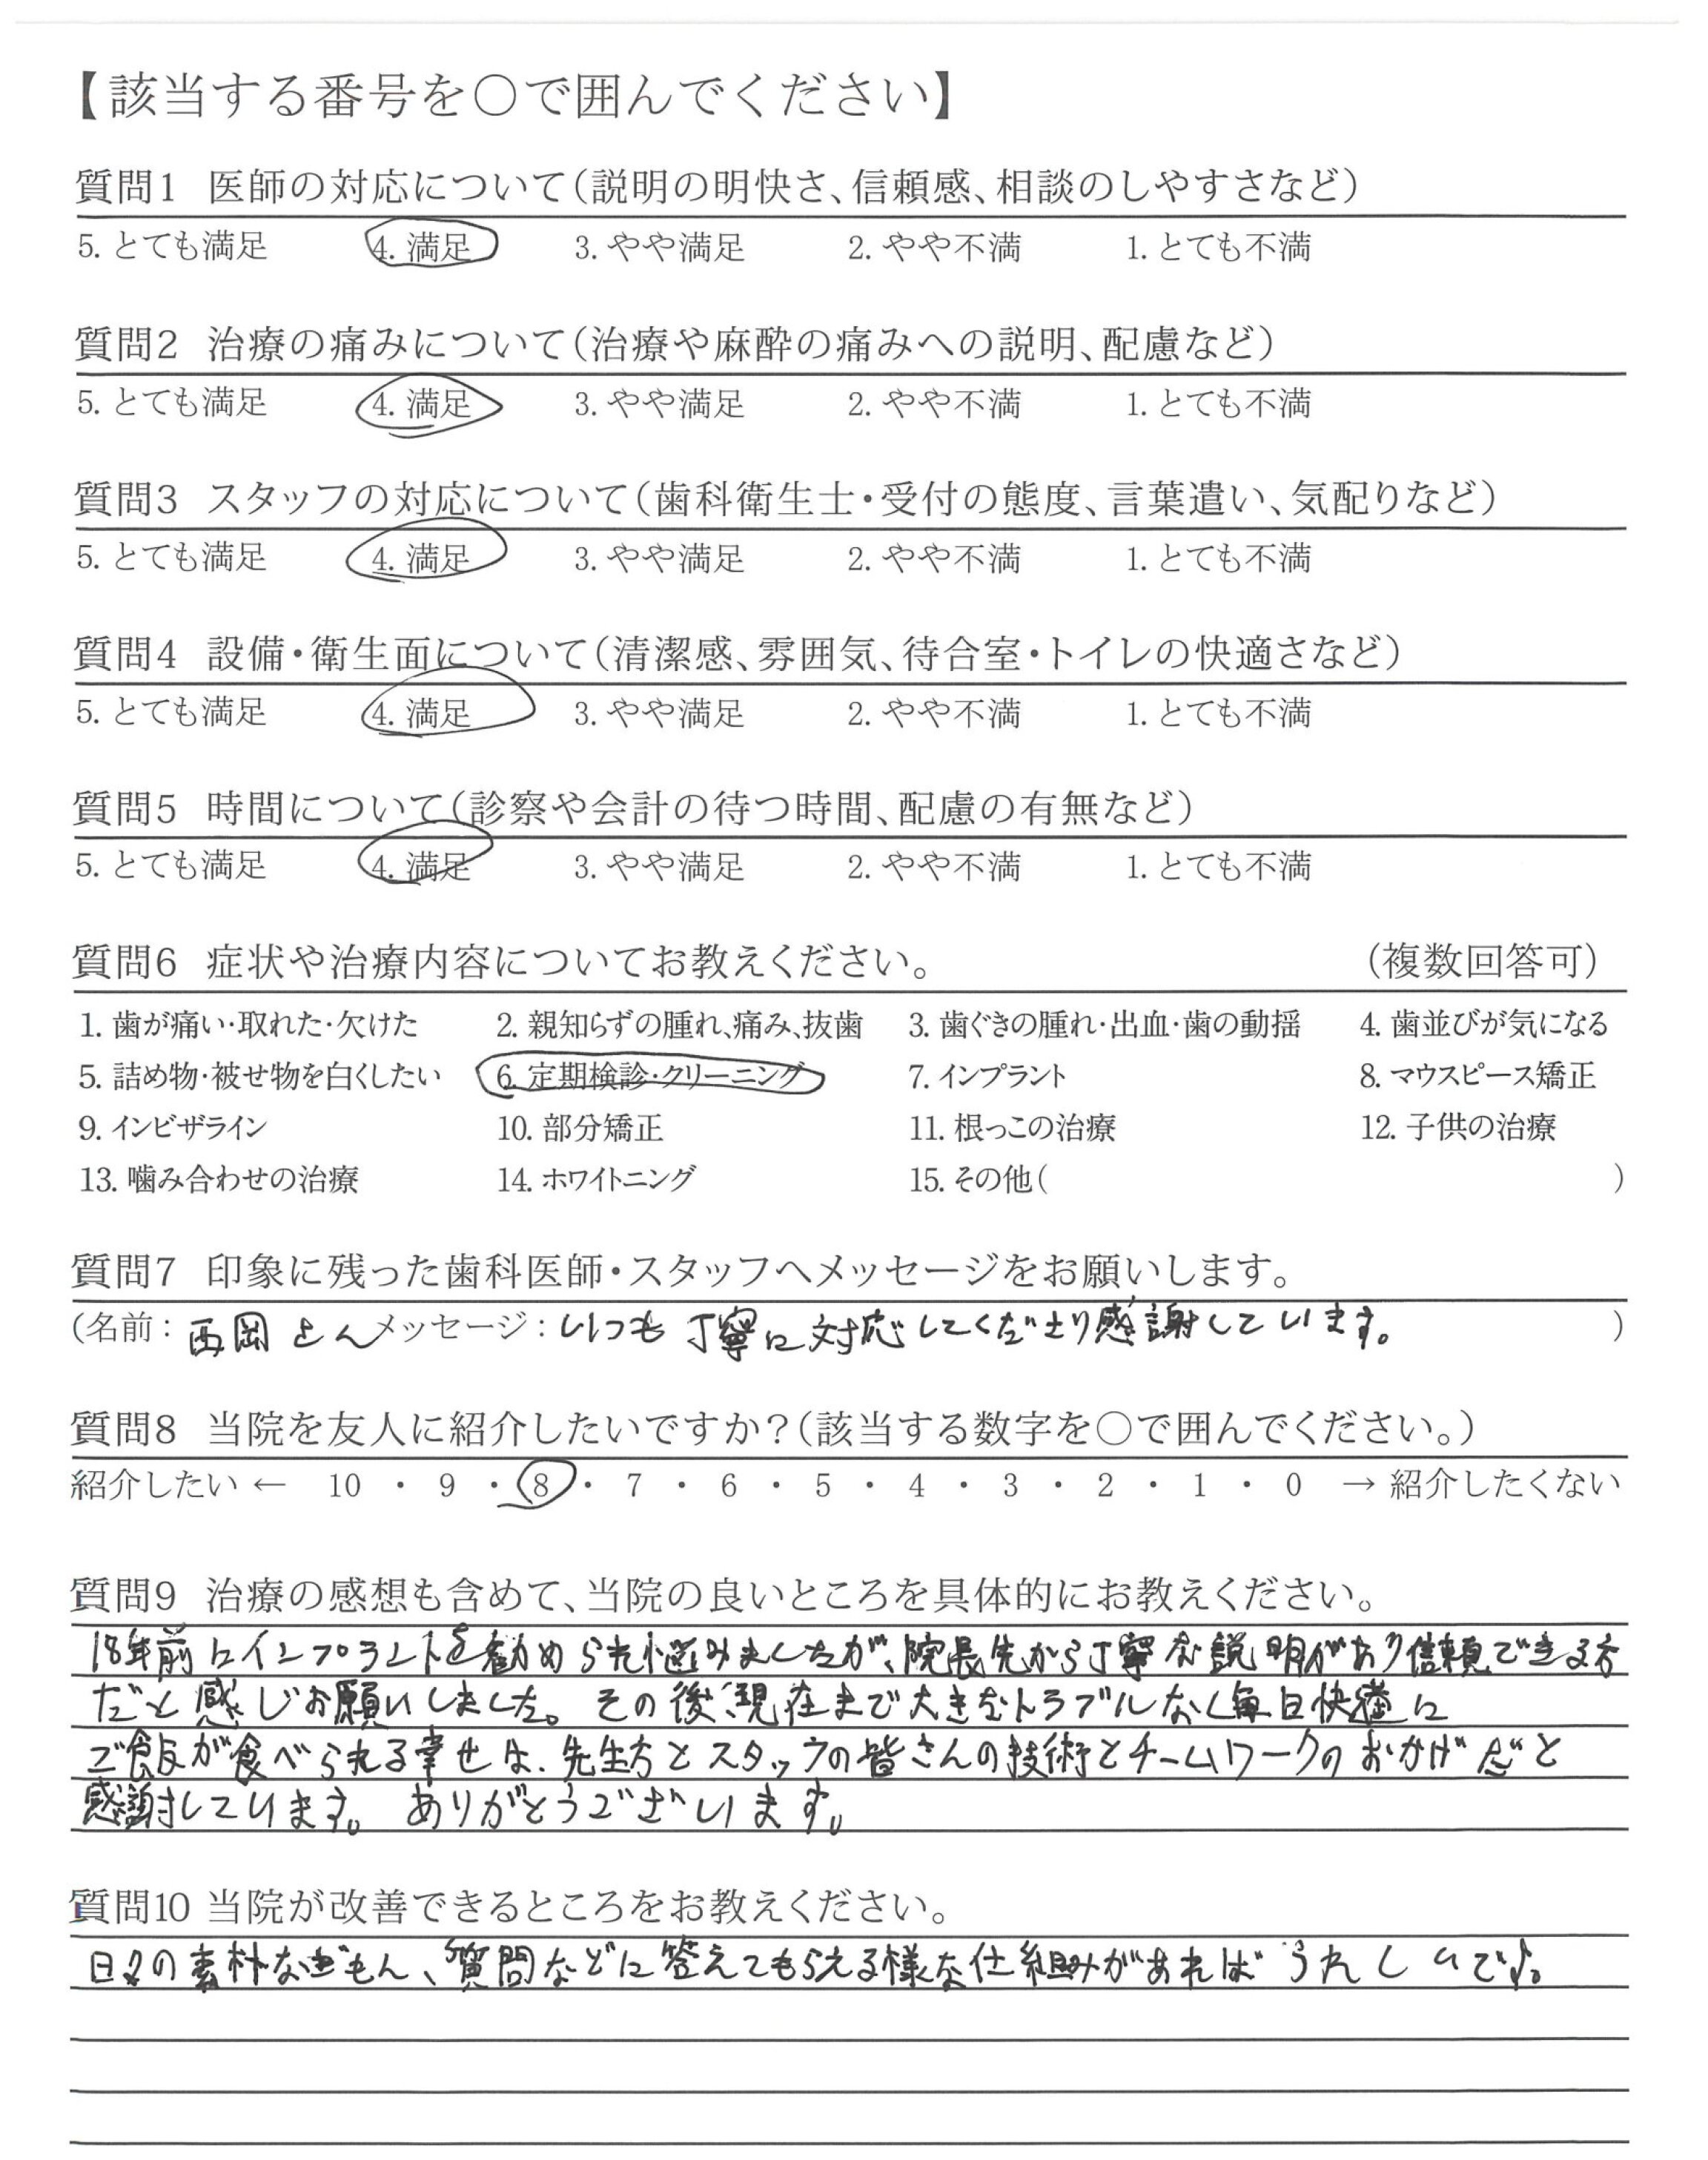 【該当する番号を○で囲んでください】
質問1 医師の対応について(説明の明快さ、信頼感、相談のしやすさなど)
5. とても満足 4. 満足 3. やや満足 2. やや不満 1. とても不満
質問2 治療の痛みについて(治療や麻酔の痛みへの説明、配慮など)
5. とても満足 4. 満足 3. やや満足 2. やや不満 1. とても不満
質問3 スタッフの対応について(歯科衛生士・受付の態度、言葉遣い、気配りなど)
5. とても満足 4. 満足 3. やや満足 2. やや不満 1. とても不満
質問4 設備・衛生面について(清潔感、雰囲気、待合室・トイレの快適さなど)
5. とても満足 4. 満足 3. やや満足 2. やや不満 1. とても不満
質問5 時間について(診察や会計の待つ時間、配慮の有無など)
5. とても満足 4. 満足 3. やや満足 2. やや不満 1. とても不満
質問6 症状や治療内容についてお教えください。 (複数回答可)
1. 歯が痛い・取れた・欠けた 2. 親知らずの腫れ、痛み、抜歯 3. 歯ぐきの腫れ・出血・歯の動揺 4. 歯並びが気になる
5. 詰め物・被せ物を白くしたい 6. 定期検診・クリーニング 7. インプラント 8. マウスピース矯正
9. インビザライン 10. 部分矯正 11. 根っこの治療 12. 子供の治療
13. 噛み合わせの治療 14. ホワイトニング 15. その他( )
質問7 印象に残った歯科医師・スタッフへメッセージをお願いします。
(名前: 西岡さん メッセージ: いつも丁寧に対応してくださり感謝しています。 )
質問8 当院を友人に紹介したいですか?(該当する数字を○で囲んでください。)
紹介したい ← 10 ・ 9 ・ 8 ・ 7 ・ 6 ・ 5 ・ 4 ・ 3 ・ 2 ・ 1 ・ 0 → 紹介したくない
質問9 治療の感想も含めて、当院の良いところを具体的にお教えください。
18年前にインプラントを勧められ悩みましたが、院長先から丁寧な説明があり信頼できる方
だと感じお願いしました。その後、現在まで大きなトラブルなく毎日快適に
ご飯が食べられる幸せは、先生方とスタッフの皆さんの技術とチームワークのおかげだと
感謝しています。ありがとうございます。
質問10 当院が改善できるところをお教えください。
日々の素朴なぎもん、質問などに答えてもらえる様な仕組みがあればうれしいです。